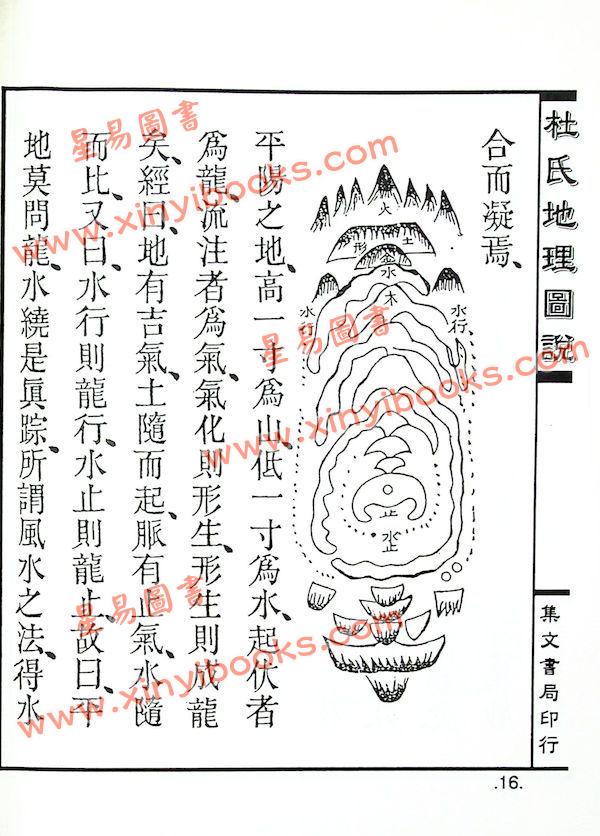 杜氏地理圖說
集文書局印行
合而凝焉、
火
土
形
金
水
木
水行
水行
止
水止
平陽之地、高一寸為山、低一寸為水、起伏者
為龍、流注者為氣、氣化則形生、形生則成龍
矣、經曰、地有吉氣、土隨而起、脈有止氣、水隨
而比、又曰、水行則龍行、水止則龍止、故曰、平
地莫問龍、水繞是眞踪、所謂風水之法、得水
.16.
星易圖書
www.xinyibooks.com
星易圖書
www.xinyibooks.com
星易圖書
www.xinyibooks.com